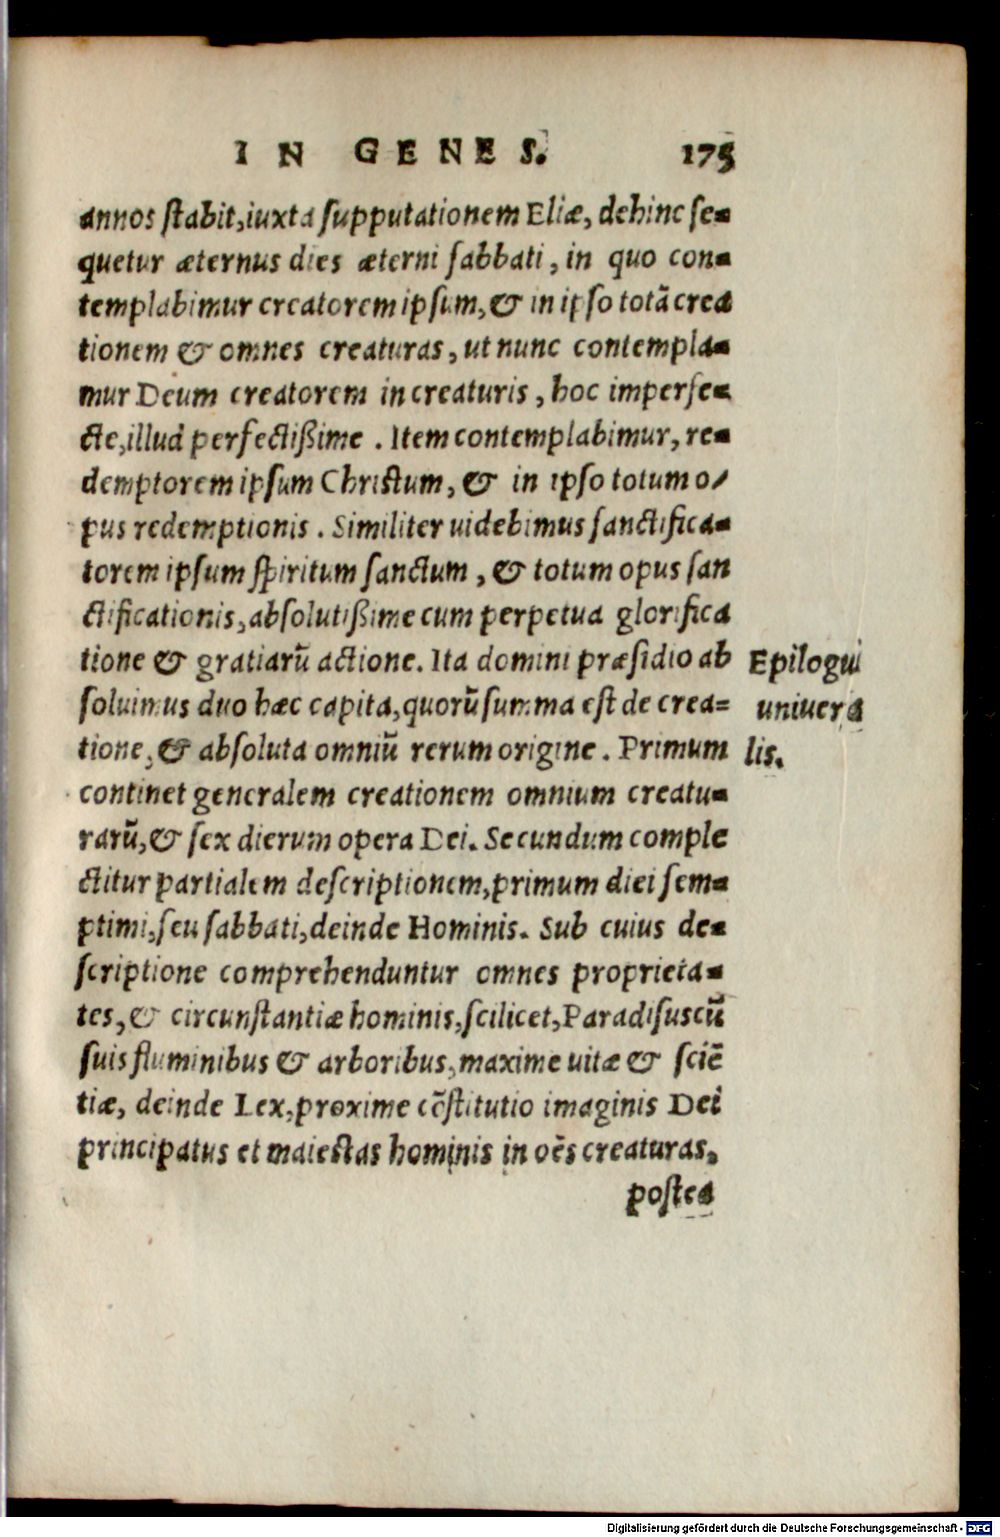 IN GENES. 175
annos stabit, iuxta supputationem Eliæ, dehinc se-
quetur æternus dies æterni sabbati, in quo con-
templabimur creatorem ipsum, & in ipso totā crea
tionem & omnes creaturas, ut nunc contempla-
mur Deum creatorem in creaturis, hoc imperfe-
cte, illud perfectißime. Item contemplabimur, re-
demptorem ipsum Christum, & in ipso totum o-
pus redemptionis. Similiter uidebimus sanctifica-
torem ipsum spiritum sanctum, & totum opus san
ctificationis, absolutißime cum perpetua glorifica
tione & gratiarū actione. Ita domini præsidio ab
soluimus duo hæc capita, quorū summa est de crea-
tione, & absoluta omniū rerum origine. Primum
continet generalem creationem omnium creatu-
rarū, & sex dierum opera Dei. Secundum comple
ctitur partialem descriptionem, primum diei sem-
ptimi, seu sabbati, deinde Hominis. Sub cuius de-
scriptione comprehenduntur omnes proprieta-
tes, & circunstantiæ hominis, scilicet, Paradisus cū
suis fluminibus & arboribus, maxime uitæ & sciē
tiæ, deinde Lex, proxime cōstitutio imaginis Dei
principatus et maiestas hominis in oēs creaturas.
postea
Epilogui
uniuersa
lis.
Digitalisierung gefördert durch die Deutsche Forschungsgemeinschaft - DFG